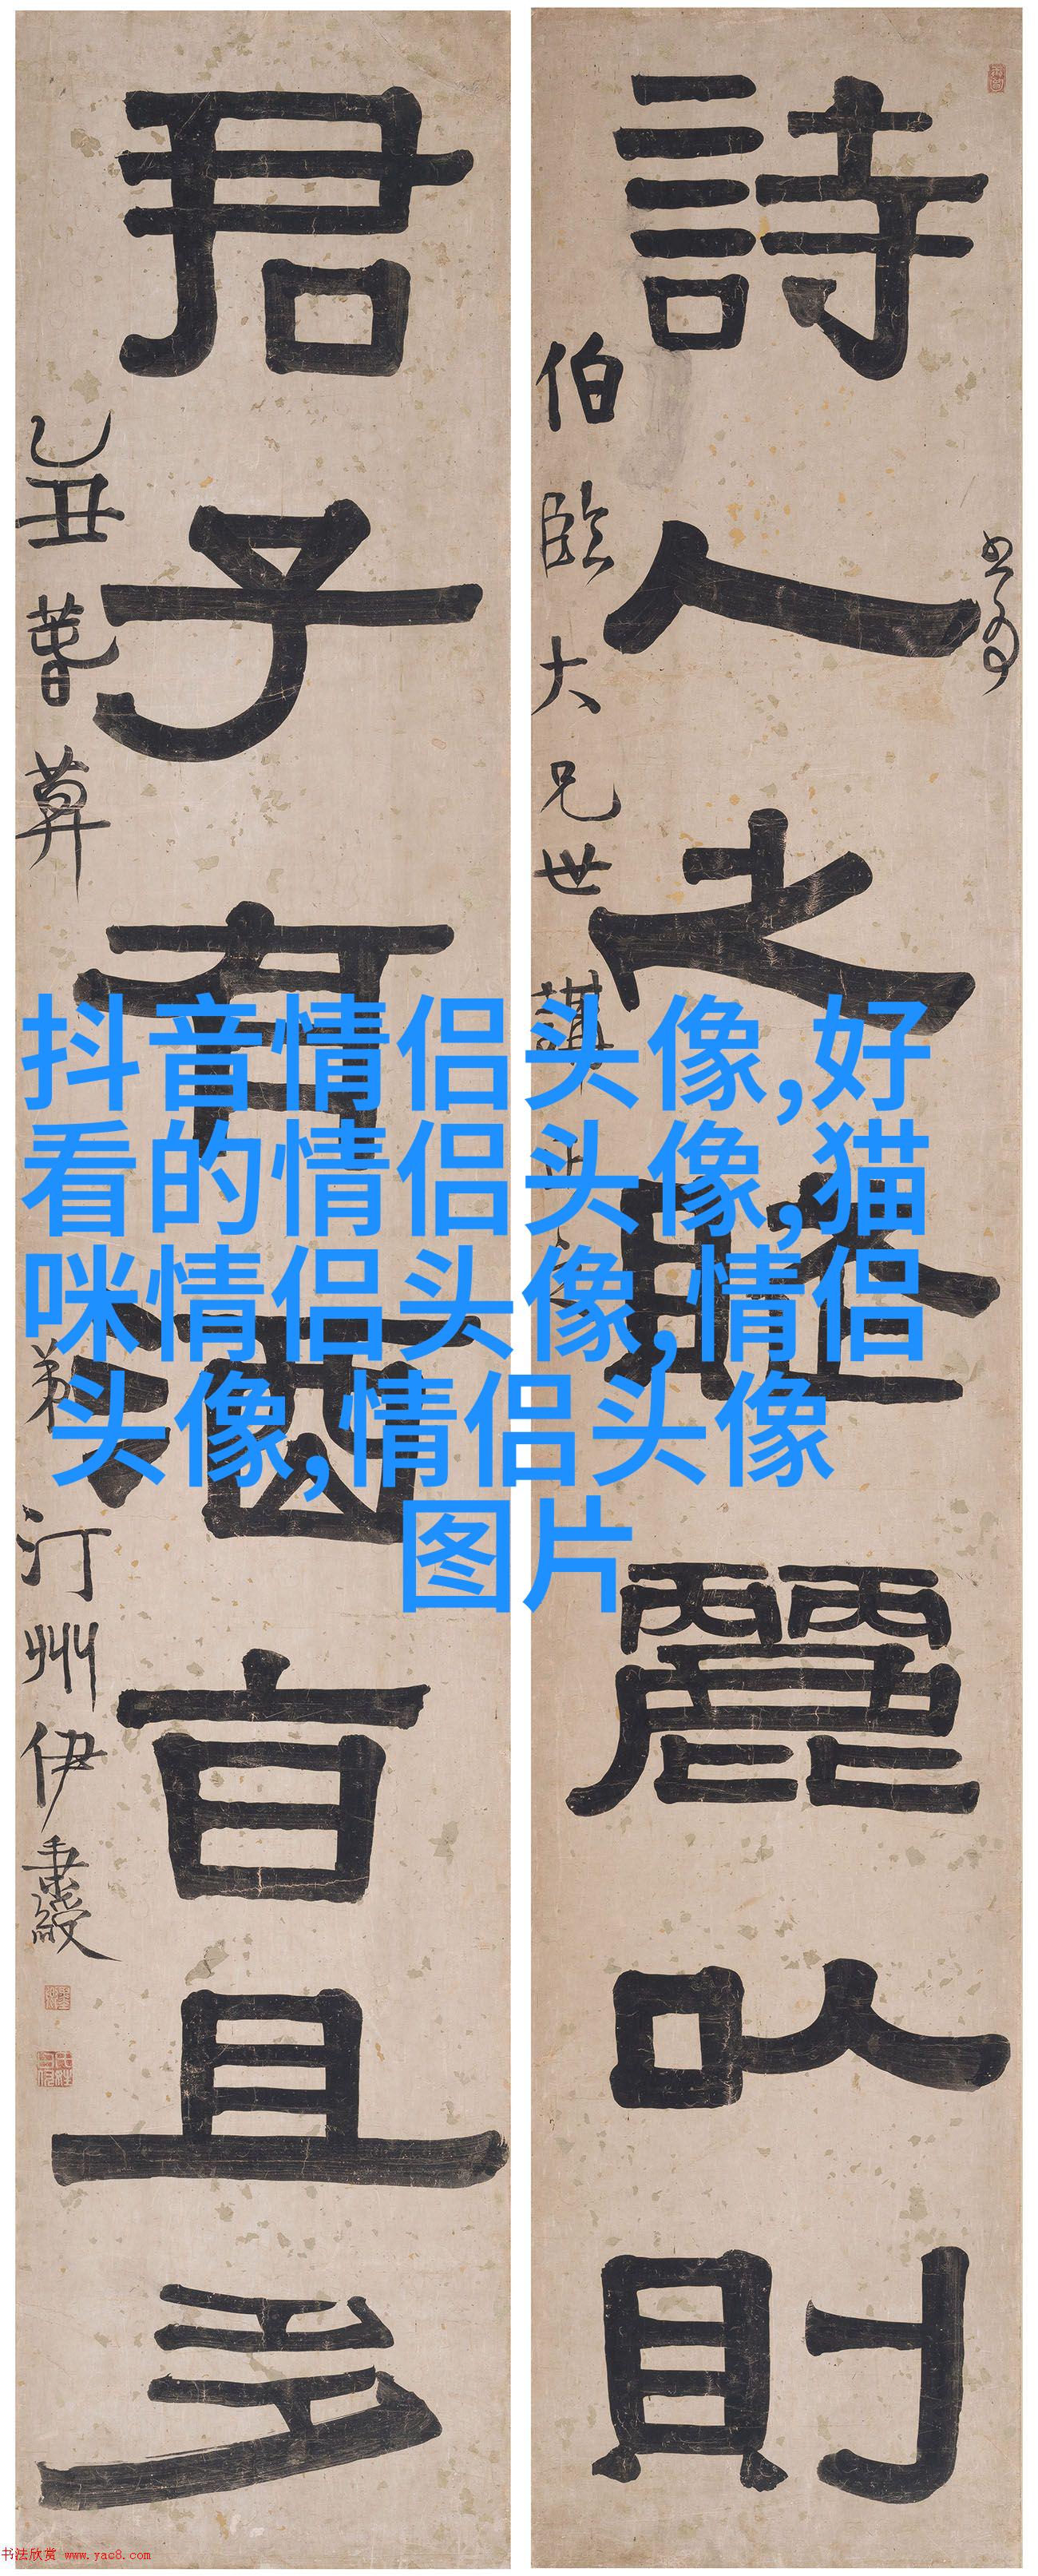 書為
詩人之賦麗以則
伯臨大兄世講正
君子有酒旨且多
乙丑
弟汀州伊秉綬
抖音情侣头像,好
看的情侣头像,猫
咪情侣头像,情侣
头像,情侣头像
图片
书法欣赏 www.yac8.com